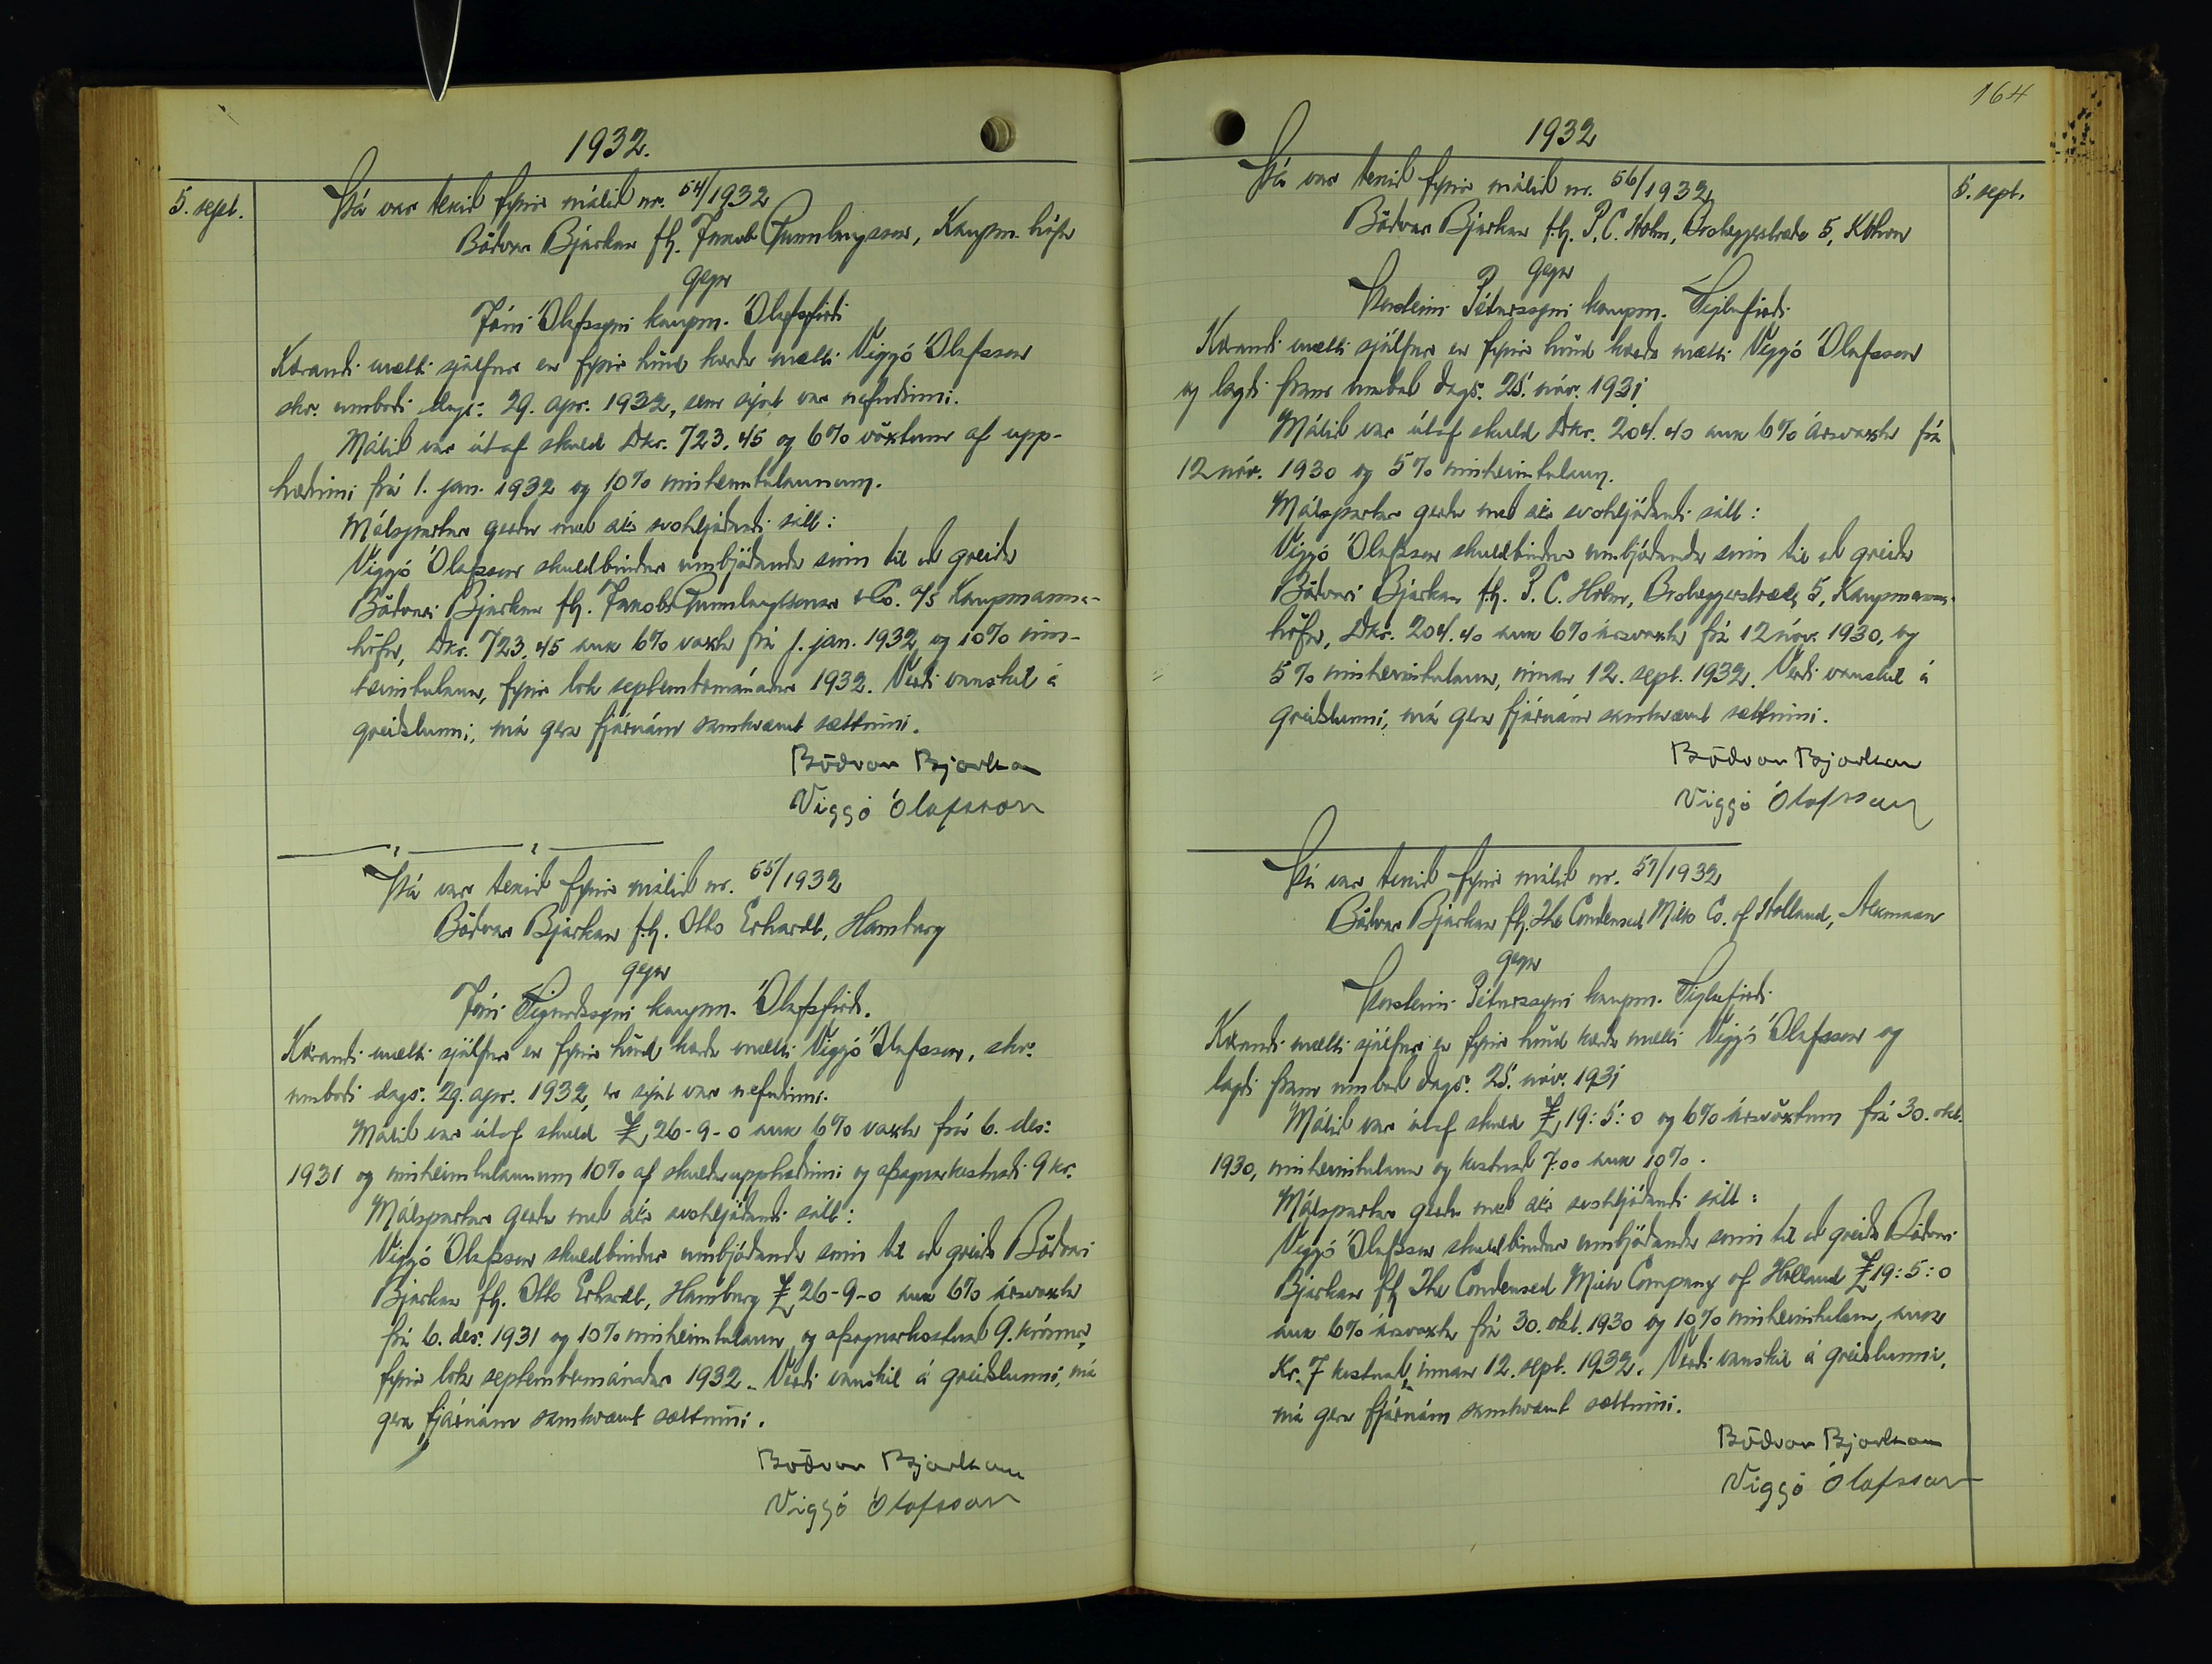 1932.
5. sept.
Þá var tekið fyrir málið nr. 54/1932
Böðvar Bjarkan fh. Jakob Gunnlaugsson, Kaupm. höfn
gegn
Jóni Ólafssyni kaupm. Ólafsfirði
Kærandi mætti sjálfur en fyrir hönd kærða mætti Viggó Ólafsson
skv. umboði dags: 29. apr. 1932, sem sýnt var nefndinni.
Málið var útaf skuld Dkr. 723.45 og 6% vöxtum af upp-
hæðinni frá 1. jan. 1932 og 10% innheimtulaunum.
Málspartar gerðu með sér svohljóðandi sátt:
Viggó Ólafsson skuldbindur umbjóðanda sinn til að greiða
Böðvari Bjarkan fh. Jakobs Gunnlaugssonar & Co. A/S Kaupmanna-
höfn, Dkr. 723.45 auk 6% vaxta frá 1. jan. 1932 og 10% inn-
heimtulaun, fyrir lok septembermánaðar 1932. Verði vanskil á
greiðslunni, má gera fjárnám samkvæmt sættinni.
Böðvar Bjarkan
Viggó Ólafsson
Þá var tekið fyrir málið nr. 55/1932
Böðvar Bjarkan f.h. Otto Erhardt, Hamburg
gegn
Jóni Sigurðssyni kaupm. Ólafsfirði.
Kærandi mætti sjálfur en fyrir hönd kærða mætti Viggó Ólafsson, skv.
umboði dags: 29. apr. 1932, er sýnt var nefndinni.
Málið var útaf skuld £ 26-9-0 auk 6% vaxta frá 6. des:
1931 og innheimtulaunum 10% af skuldarupphæðinni og afsagnarkostnaði 9 kr.
Málspartar gerðu með sér svohljóðandi sátt:
Viggó Ólafsson skuldbindur umbjóðanda sinn til að greiða Böðvari
Bjarkan fh. Otto Erhardt, Hamburg £ 26-9-0 auk 6% ársvaxta
frá 6. des: 1931 og 10% innheimtulaun, og afsagnarkostnað 9. krónur,
fyrir lok septembermánaðar 1932. Verði vanskil á greiðslunni, má
gera fjárnám samkvæmt sættinni.
Böðvar Bjarkan
Viggó Ólafsson
164
1932
5. sept.
Þá var tekið fyrir málið nr. 56/1932
Böðvar Bjarkan f.h. P.C. Holm, Brolæggerstræde 5, Kbhvn
gegn
Þorsteini Péturssyni kaupm. Siglufirði
Kærandi mætti sjálfur en fyrir hönd kærða mætti Viggó Ólafsson
og lagði fram umboð dags: 25. nóv. 1931
Málið var útaf skuld Dkr. 204.40 auk 6% ársvaxta frá
12 nóv. 1930 og 5% innheimtulaun.
Málspartar gerðu með sér svohljóðandi sátt:
Viggó Ólafsson skuldbindur umbjóðanda sinn til að greiða
Böðvari Bjarkan f.h. P.C. Holm, Brolæggerstræde 5, Kaupmanna-
höfn, Dkr. 204.40 auk 6% ársvaxta frá 12 nóv. 1930, og
5% innheimtulaun, innan 12. sept. 1932. Verði vanskil á
greiðslunni, má gera fjárnám samkvæmt sættinni.
Böðvar Bjarkan
Viggó Ólafsson
Þá var tekið fyrir málið nr. 57/1932
Böðvar Bjarkan fh. The Condensed Milk Co. of Holland, Alkmaar
gegn
Þorsteini Péturssyni kaupm. Siglufirði
Kærandi mætti sjálfur en fyrir hönd kærða mætti Viggó Ólafsson og
lagði fram umboð dags: 25. nóv. 1931
Málið var útaf skuld £ 19:5:0 og 6% ársvöxtum frá 30. okt.
1930, innheimtulaun og kostnað 7.00 auk 10%.
Málspartar gerðu með sér svohljóðandi sátt:
Viggó Ólafsson skuldbindur umbjóðanda sinn til að greiða Böðvari
Bjarkan fh The Condensed Milk Company of Holland £ 19:5:0
auk 6% ársvaxta frá 30. okt. 1930 og 10% innheimtulaun, auk
Kr. 7 kostnað, innan 12. sept. 1932. Verði vanskil á greiðslunni,
má gera fjárnám samkvæmt sættinni.
Böðvar Bjarkan
Viggó Ólafsson